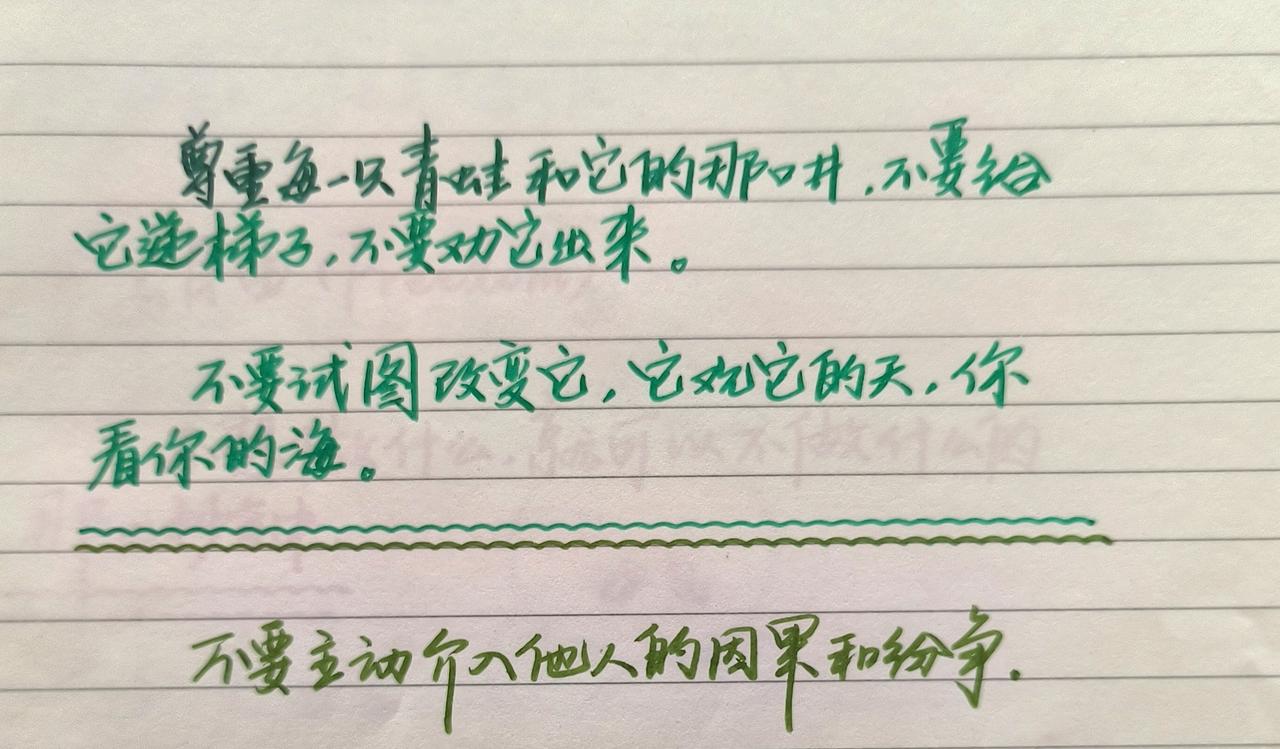 尊重每一只青蛙和它的那口井，不要给
它递梯子，不要劝它出来。
不要试图改变它，它观它的天，你
看你的海。
不要主动介入他人的因果和纷争.